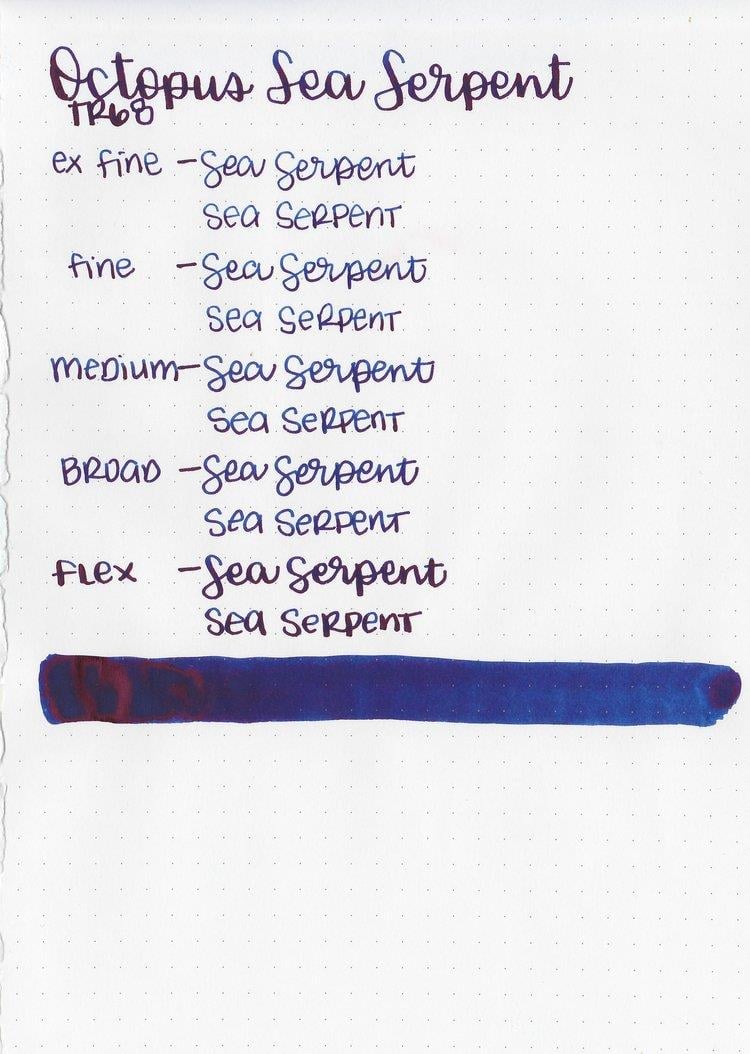 Octopus Sea Serpent
TR68
ex fine - Sea Serpent
Sea Serpent
fine - Sea Serpent
Sea Serpent
medium - Sea Serpent
Sea Serpent
Broad - Sea Serpent
Sea Serpent
Flex - Sea Serpent
Sea Serpent